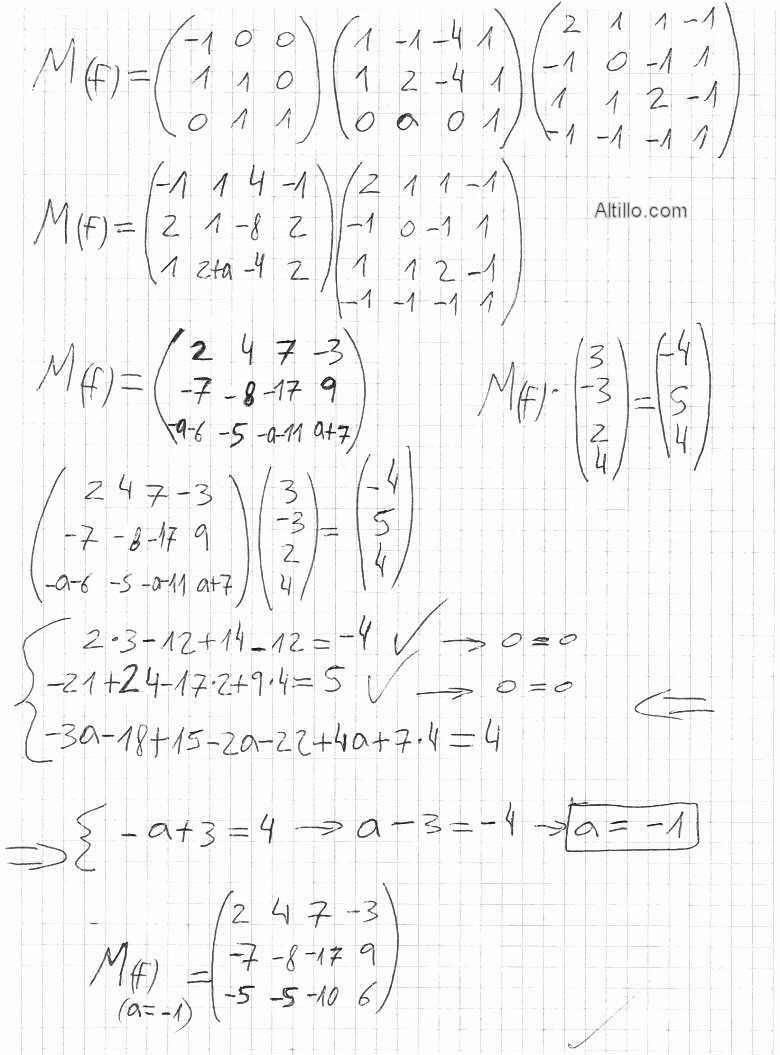 M(f) = (-1 0 0; 1 1 0; 0 1 1) (1 -1 -4 1; 1 2 -4 1; 0 a 0 1) (2 1 1 -1; -1 0 -1 1; 1 1 2 -1; -1 -1 -1 1)
M(f) = (-1 1 4 -1; 2 1 -8 2; 1 2+a -4 2) (2 1 1 -1; -1 0 -1 1; 1 1 2 -1; -1 -1 -1 1)
Altillo.com
M(f) = (2 4 7 -3; -7 -8 -17 9; -a-6 -5 -a-11 a+7)
M(f) · (3; -3; 2; 4) = (-4; 5; 4)
(2 4 7 -3; -7 -8 -17 9; -a-6 -5 -a-11 a+7) (3; -3; 2; 4) = (-4; 5; 4)
{ 2·3-12+14-12 = -4 ✓ → 0 = 0
-21+24-17·2+9·4 = 5 ✓ → 0 = 0 ⇐
-3a-18+15-2a-22+4a+7·4 = 4
⇒ { -a+3 = 4 → a-3 = -4 → a = -1
M(f) (a=-1) = (2 4 7 -3; -7 -8 -17 9; -5 -5 -10 6)